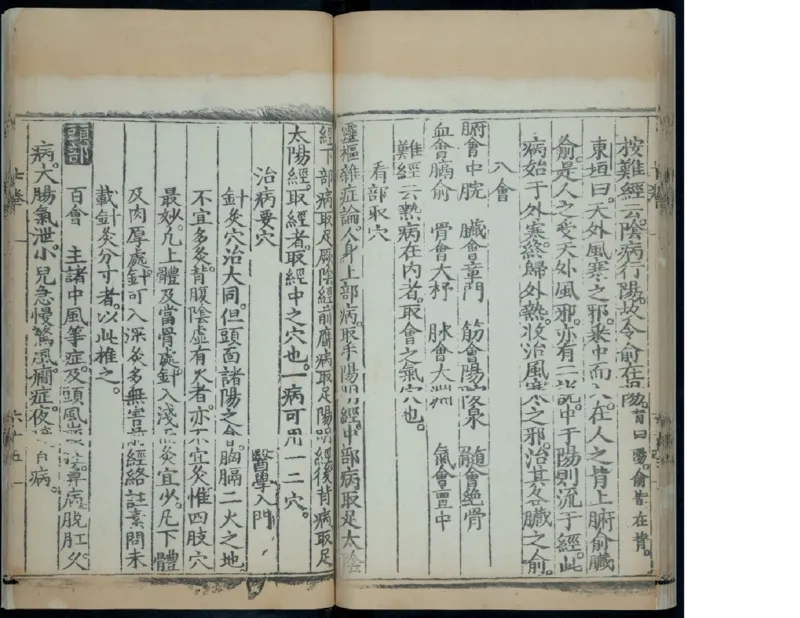 按難經云陰病行陽故令俞在陽背曰陽俞皆在背
東垣曰天外風寒之邪乘中而入在人之背上腑俞臟
俞是人之受天外風邪亦有二說中于陽則流于經此
病始于外寒終歸外熱收治風寒之邪治其各臟之俞
八會
腑會中脘 臟會章門 筋會陽陵泉 髓會絶骨
血會膈俞 骨會大杼 脉會大淵 氣會亶中
難經云熱病在内者取會之氣穴也
看部取穴
靈樞雜症論人身上部病取手陽明經中部病取足太陰
經下部病取足厥陰經前膺病取足陽明經後背病取足
太陽經取經者取經中之穴也一病可用一二穴
治病要穴 醫學入門
針灸穴治大同但頭面諸陽之會胸膈二火之地
不宜多灸背腹陰虛有火者亦不宜灸惟四肢穴
最妙凡上體及當骨處針入淺而灸宜少凡下體
及肉厚處針可入深灸多無害前經絡註素問未
載針灸分寸者以此推之
頭部
百會 主諸中風等症及頭風 鼻病脱肛久
病大腸氣泄小兒急慢驚風癎症夜 百病